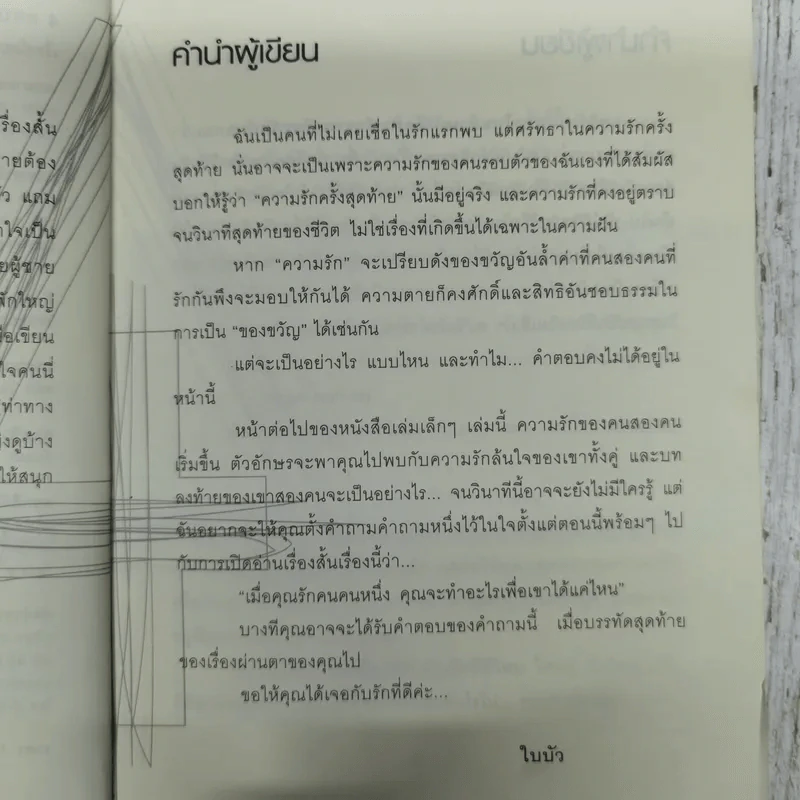 รื่องสั้น
ายต้อง
ัว แถม
าใจเป็น
ยผู้ชาย
ฟักใหญ่
อเขียน
ใจคนนี่
ท่าทาง
งดูบ้าง
ให้สนุก
คำนำผู้เขียน
ฉันเป็นคนที่ไม่เคยเชื่อในรักแรกพบ แต่ศรัทธาในความรักครั้ง
สุดท้าย นั่นอาจจะเป็นเพราะความรักของคนรอบตัวของฉันเองที่ได้สัมผัส
บอกให้รู้ว่า “ความรักครั้งสุดท้าย” นั้นมีอยู่จริง และความรักที่คงอยู่ตราบ
จนวินาทีสุดท้ายของชีวิต ไม่ใช่เรื่องที่เกิดขึ้นได้เฉพาะในความฝัน
หาก “ความรัก” จะเปรียบดังของขวัญอันล้ำค่าที่คนสองคนที่
รักกันพึงจะมอบให้กันได้ ความตายก็คงศักดิ์และสิทธิอันชอบธรรมใน
การเป็น “ของขวัญ” ได้เช่นกัน
แต่จะเป็นอย่างไร แบบไหน และทำไม... คำตอบคงไม่ได้อยู่ใน
หน้านี้
หน้าต่อไปของหนังสือเล่มเล็กๆ เล่มนี้ ความรักของคนสองคน
เริ่มขึ้น ตัวอักษรจะพาคุณไปพบกับความรักล้นใจของเขาทั้งคู่ และบท
ลงท้ายของเขาสองคนจะเป็นอย่างไร... จนวินาทีนี้อาจจะยังไม่มีใครรู้ แต่
ฉันอยากจะให้คุณตั้งคำถามคำถามหนึ่งไว้ในใจตั้งแต่ตอนนี้พร้อมๆ ไป
กับการเปิดอ่านเรื่องสั้นเรื่องนี้ว่า...
“เมื่อคุณรักคนคนหนึ่ง คุณจะทำอะไรเพื่อเขาได้แค่ไหน”
บางทีคุณอาจจะได้รับคำตอบของคำถามนี้ เมื่อบรรทัดสุดท้าย
ของเรื่องผ่านตาของคุณไป
ขอให้คุณได้เจอกับรักที่ดีค่ะ...
ใบบัว